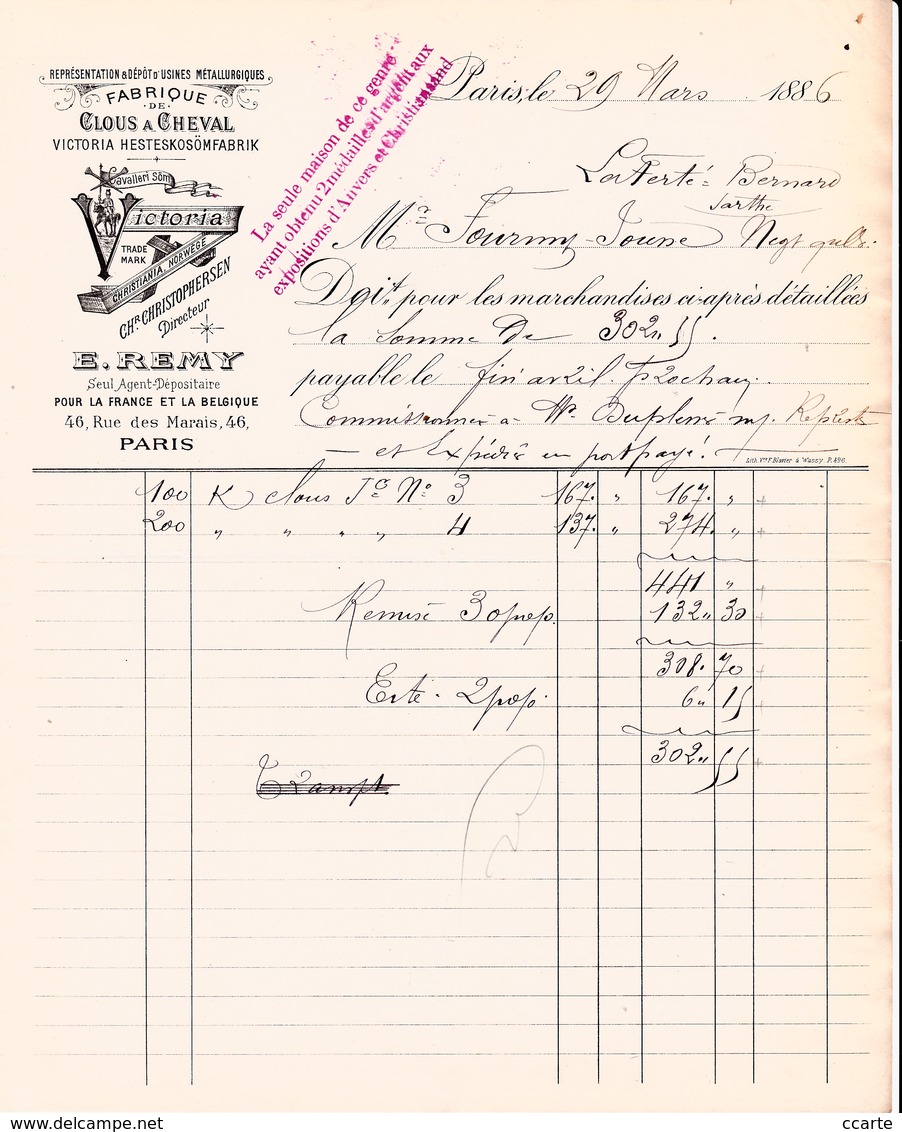 REPRÉSENTATION & DÉPÔT D'USINES MÉTALLURGIQUES
FABRIQUE
DE
CLOUS A CHEVAL
VICTORIA HESTESKOSÖMFABRIK
Cavalleri Söm
Victoria
TRADE
MARK
CHRISTIANIA, NORWÈGE
CHR. CHRISTOPHERSEN
Directeur
E. REMY
Seul Agent-Dépositaire
POUR LA FRANCE ET LA BELGIQUE
46, Rue des Marais, 46,
PARIS
La seule maison de ce genre
ayant obtenu 2 médailles d'argent aux
expositions d'Anvers et Christiansand
Paris, le 29 Mars 1886
La Ferté = Bernard
Sarthe
Mr Fourmy Negt
Doit pour les marchandises ci-après détaillées
la Somme de 302,, 55.
payable le fin avril prochain.
Commissionnés à Mr.
et Expédié en port payé.
Lith. Vve F. Blavier à Wassy. P. 496.
100 K clous Tc No 3 167. " 167. "
200 " " " " 4 137. " 274. "
441 "
Remise 30 pop. 132,, 30
308. 70
Escte. 2 pop. 6,, 15
302,, 55
Transpt.
ccarte